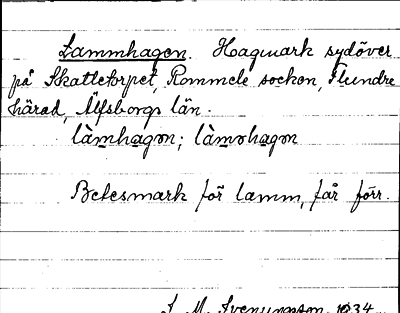 Lammhagen. Hagmark sydöver
på Skattetorpet, Rommele socken, Flundre
härad, Älfsborgs län.
làmhagɷn; làmɷhagɷn
Betesmark för lamm, får förr.
J. M. Svenungson. 1934.